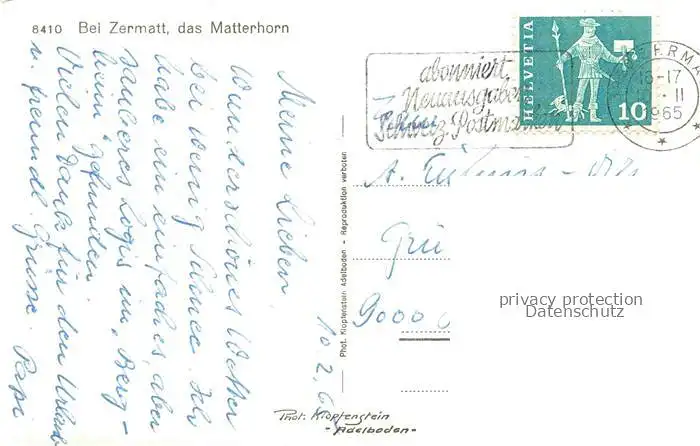 8410 Bei Zermatt, das Matterhorn
10.2.6
Meine Lieben
Wunderschönes Wetter
bei wenig Schnee. Ich
habe ein einfaches, aber
sauberes Logis im „Berg-
heim" gefunden.
Vielen Dank für den Urlaub
u. freundl. Grüsse. Papi
Phot. Klopfenstein Adelboden - Reproduktion verboten
Phot. Klopfenstein
- Adelboden -
abonniert
Neuausgaben
Schweiz. Postmarken
HELVETIA
10
ZERMA
16-17
II
1965
A.
Grü
9000
privacy protection
Datenschutz